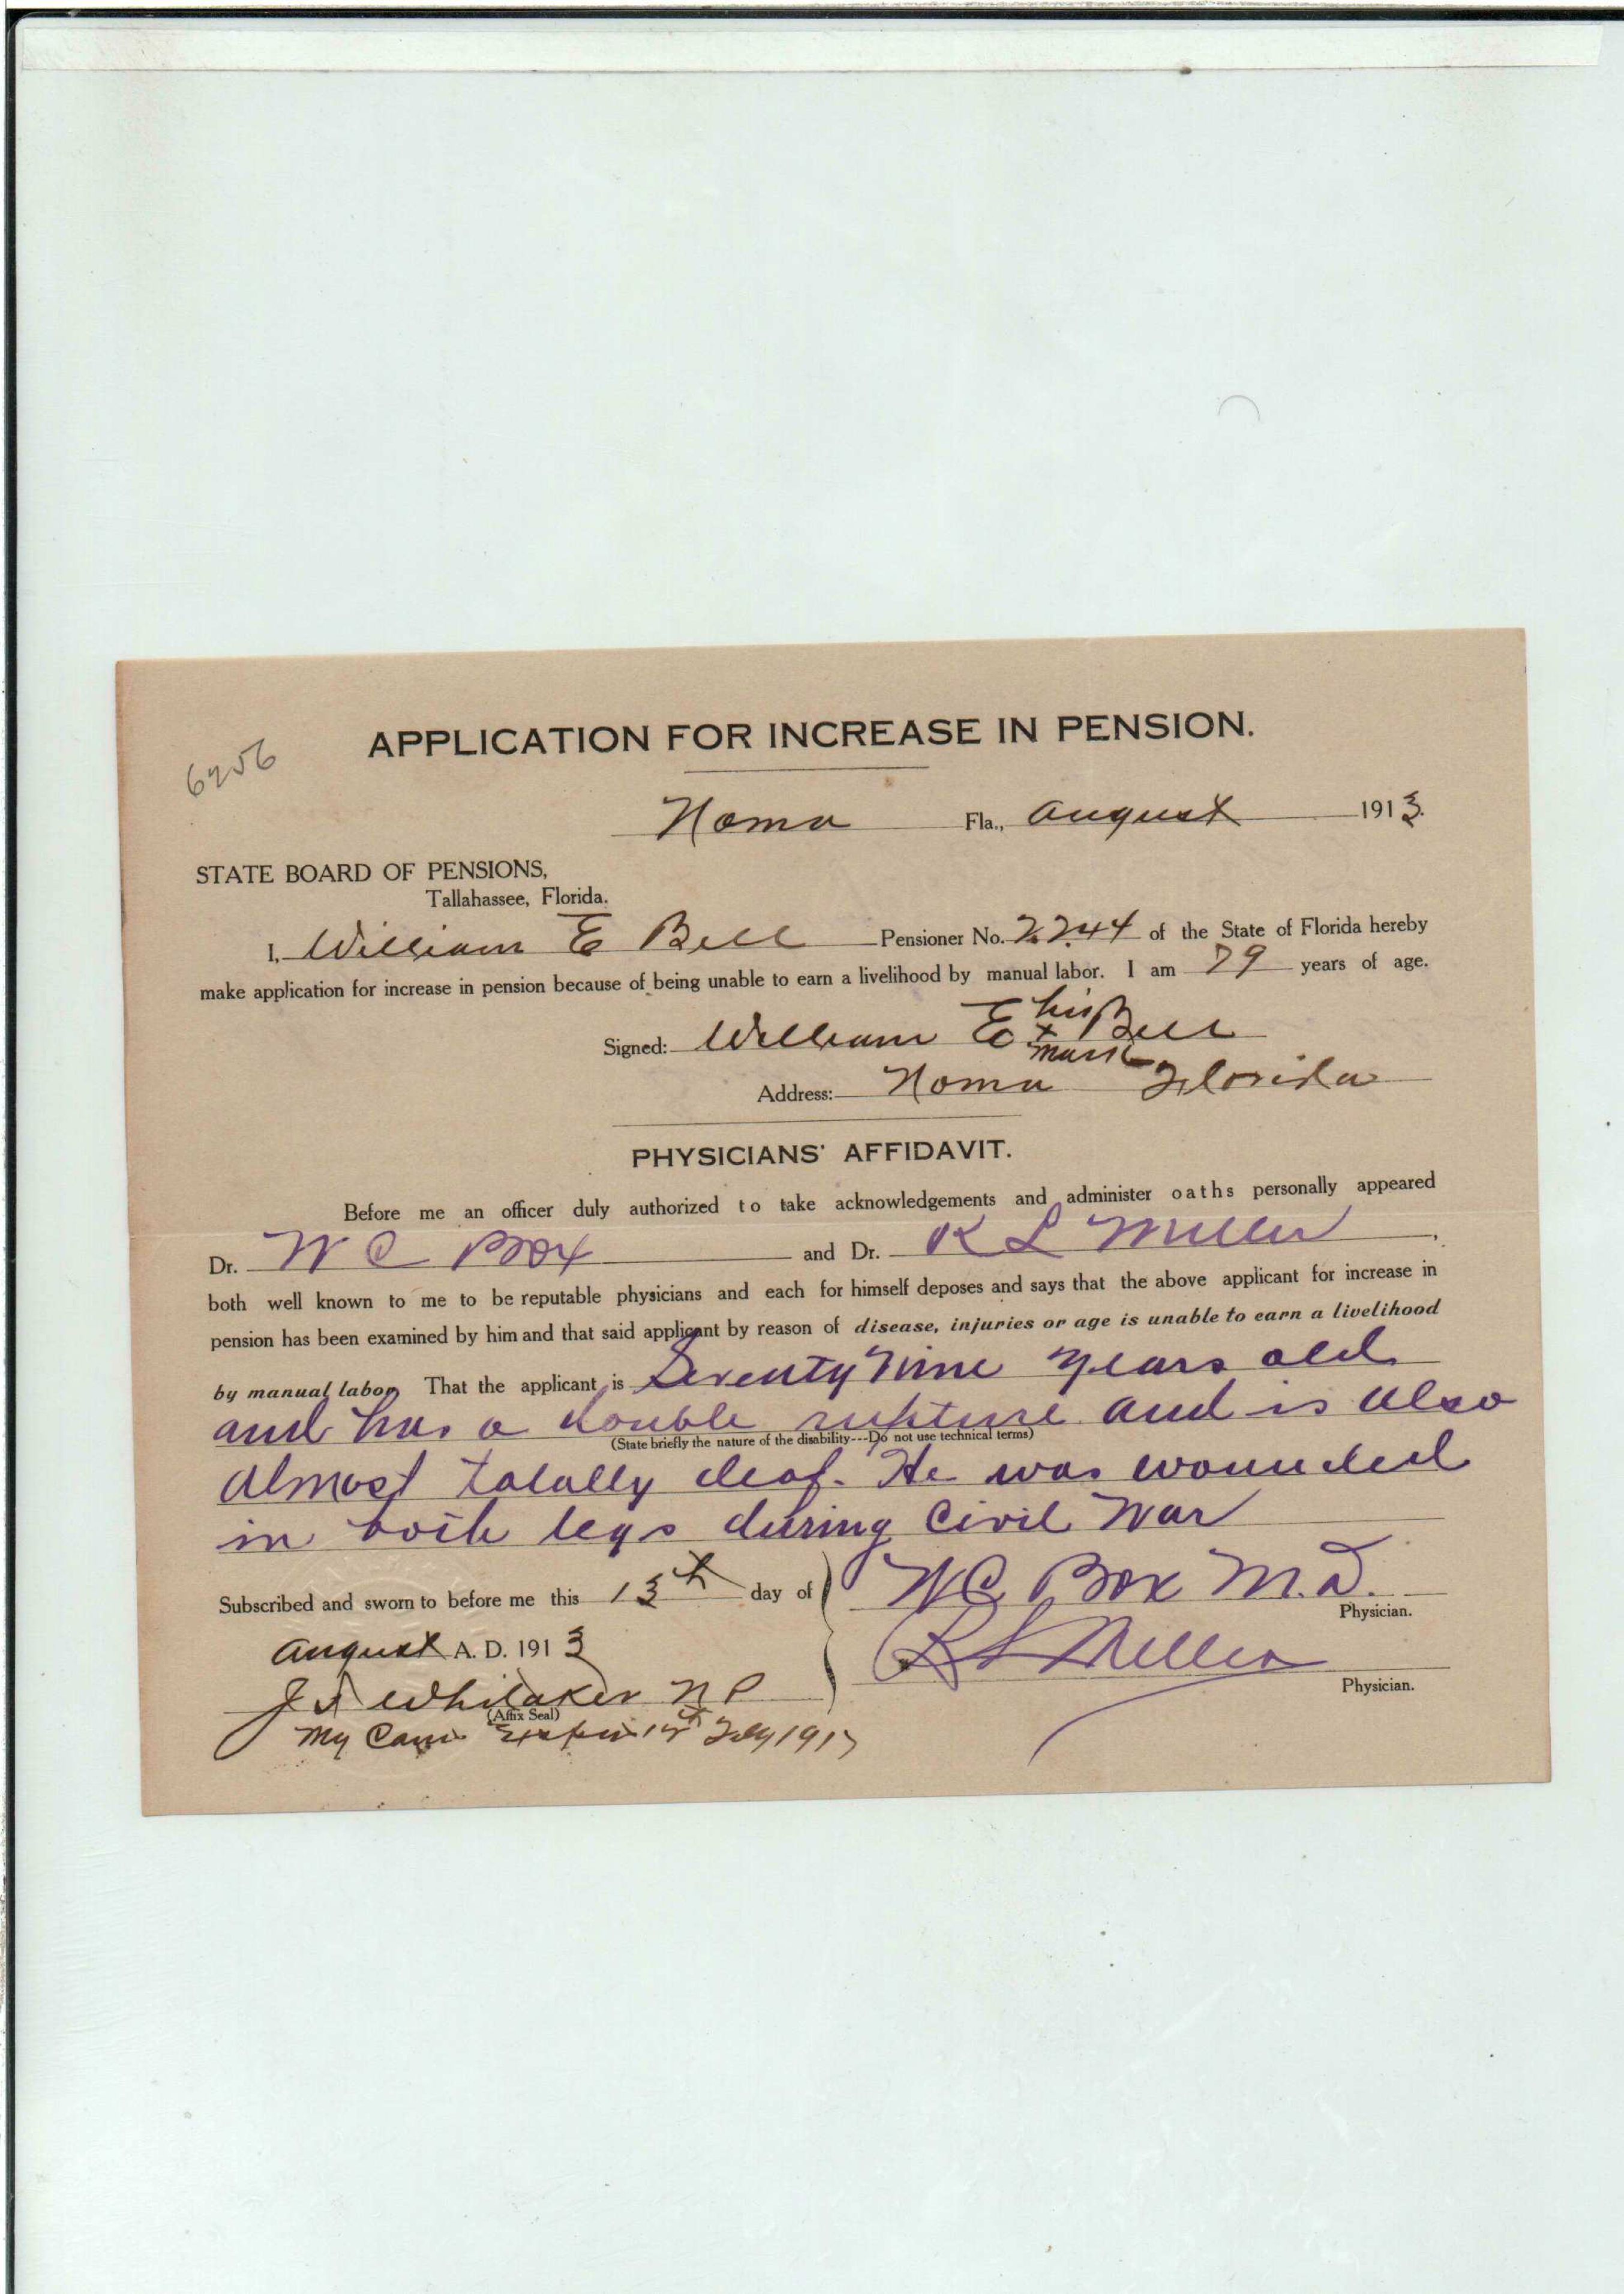 APPLICATION FOR INCREASE IN PENSION.
6256
Noma Fla., August 1913.
STATE BOARD OF PENSIONS,
Tallahassee, Florida.
I, William E Bell Pensioner No. 2244 of the State of Florida hereby
make application for increase in pension because of being unable to earn a livelihood by manual labor. I am 79 years of age.
his
Signed: William E x Bell
mark
Address: Noma Florida
PHYSICIANS' AFFIDAVIT.
Before me an officer duly authorized to take acknowledgements and administer oaths personally appeared
Dr. W C Box and Dr. R L Miller,
both well known to me to be reputable physicians and each for himself deposes and says that the above applicant for increase in
pension has been examined by him and that said applicant by reason of disease, injuries or age is unable to earn a livelihood
by manual labor. That the applicant is Seventy Nine years old
and has a double rupture and is also
(State briefly the nature of the disability---Do not use technical terms)
almost totally deaf. He was wounded
in both legs during Civil War
Subscribed and sworn to before me this 13th day of W C Box M.D.
Physician.
August A. D. 1913
R L Miller
Physician.
Whitaker N P
(Affix Seal)
My Com Expires